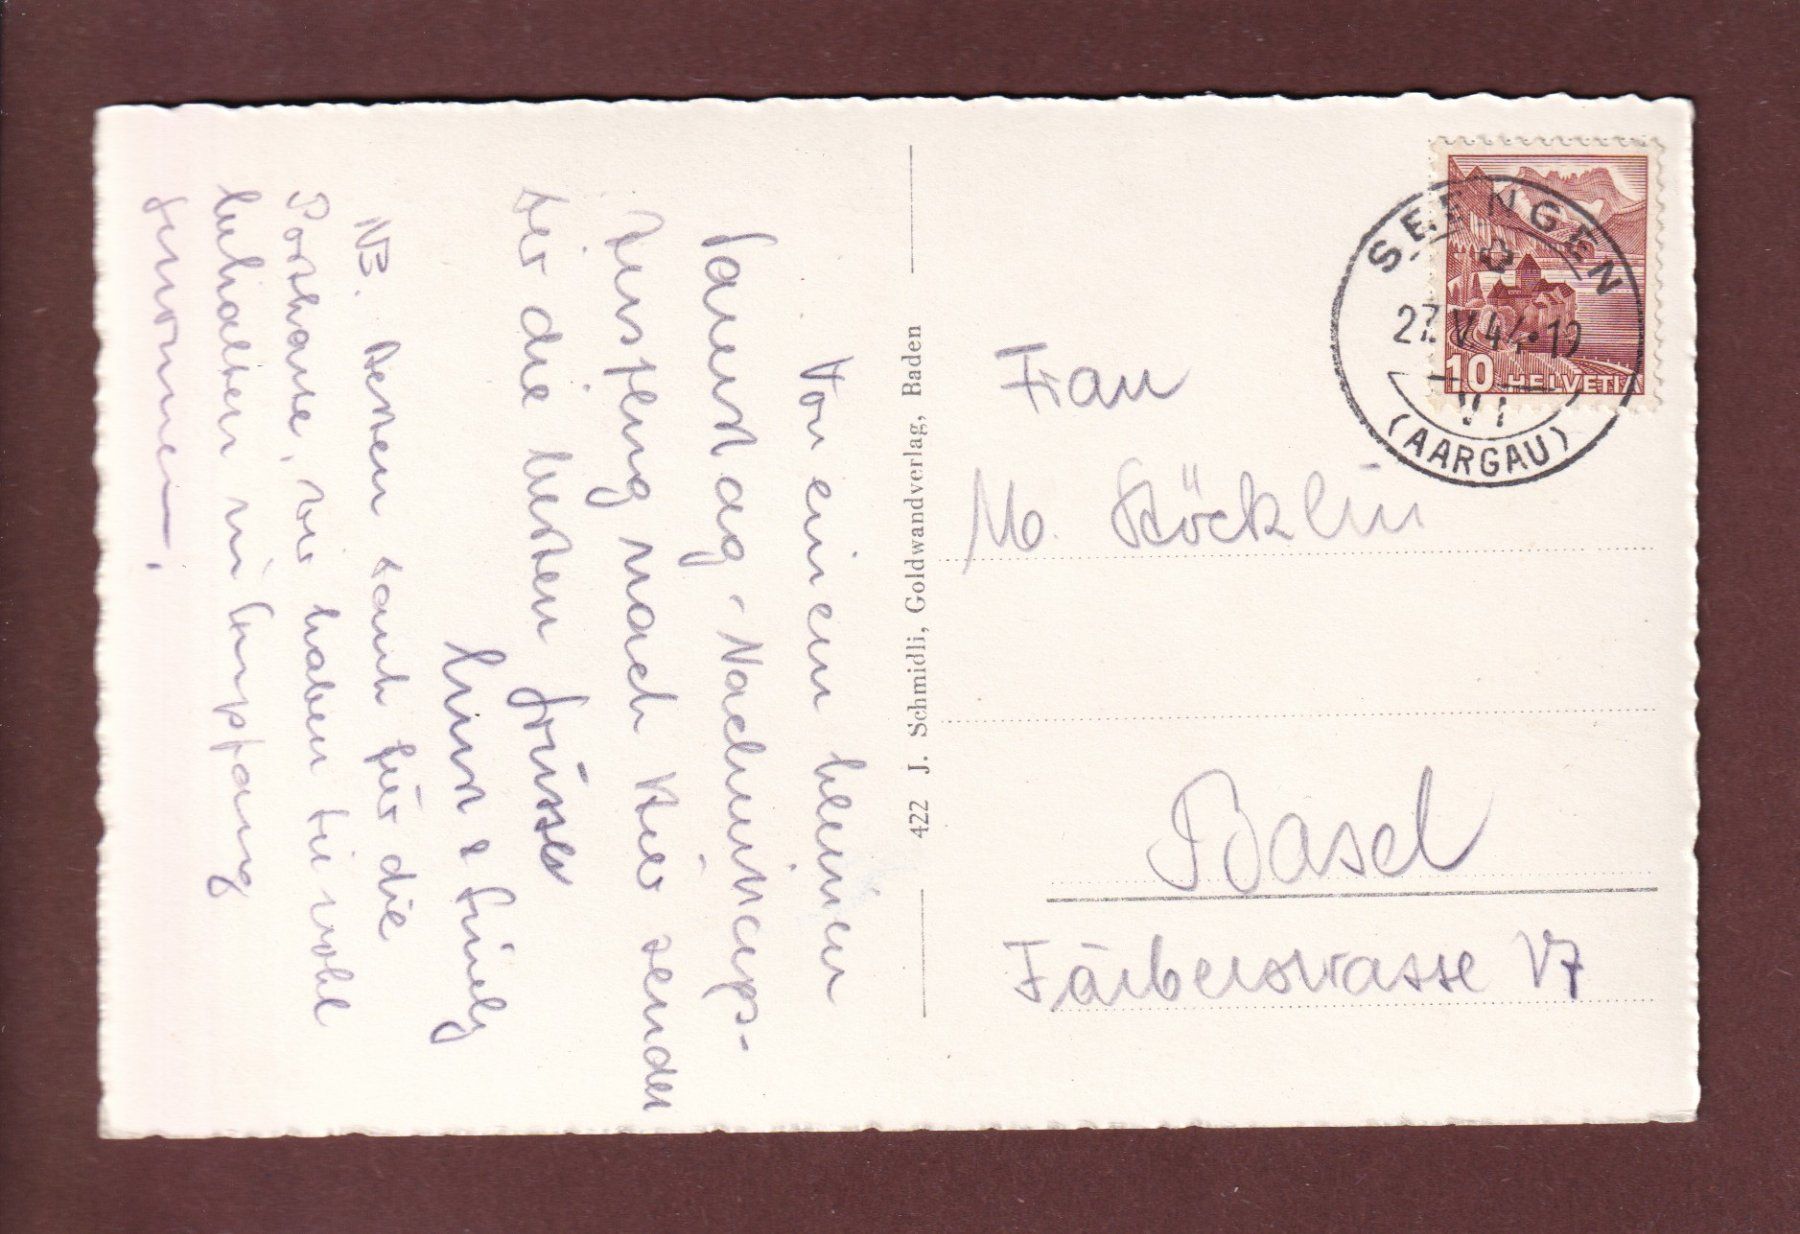 Von einem kleinen
Samstag-Nachmittags-
Ausflug nach hier sendet
dir die besten Grüsse
NB. Besten Dank für die
Postkarte, wir haben sie wohl
behalten in Empfang
genommen.
422 J. Schmidli, Goldwandverlag, Baden
SEENGEN
27.V.44-19
VI
(AARGAU)
10 HELVETIA
Frau
M. Stöcklin
Basel
Färberstrasse 17